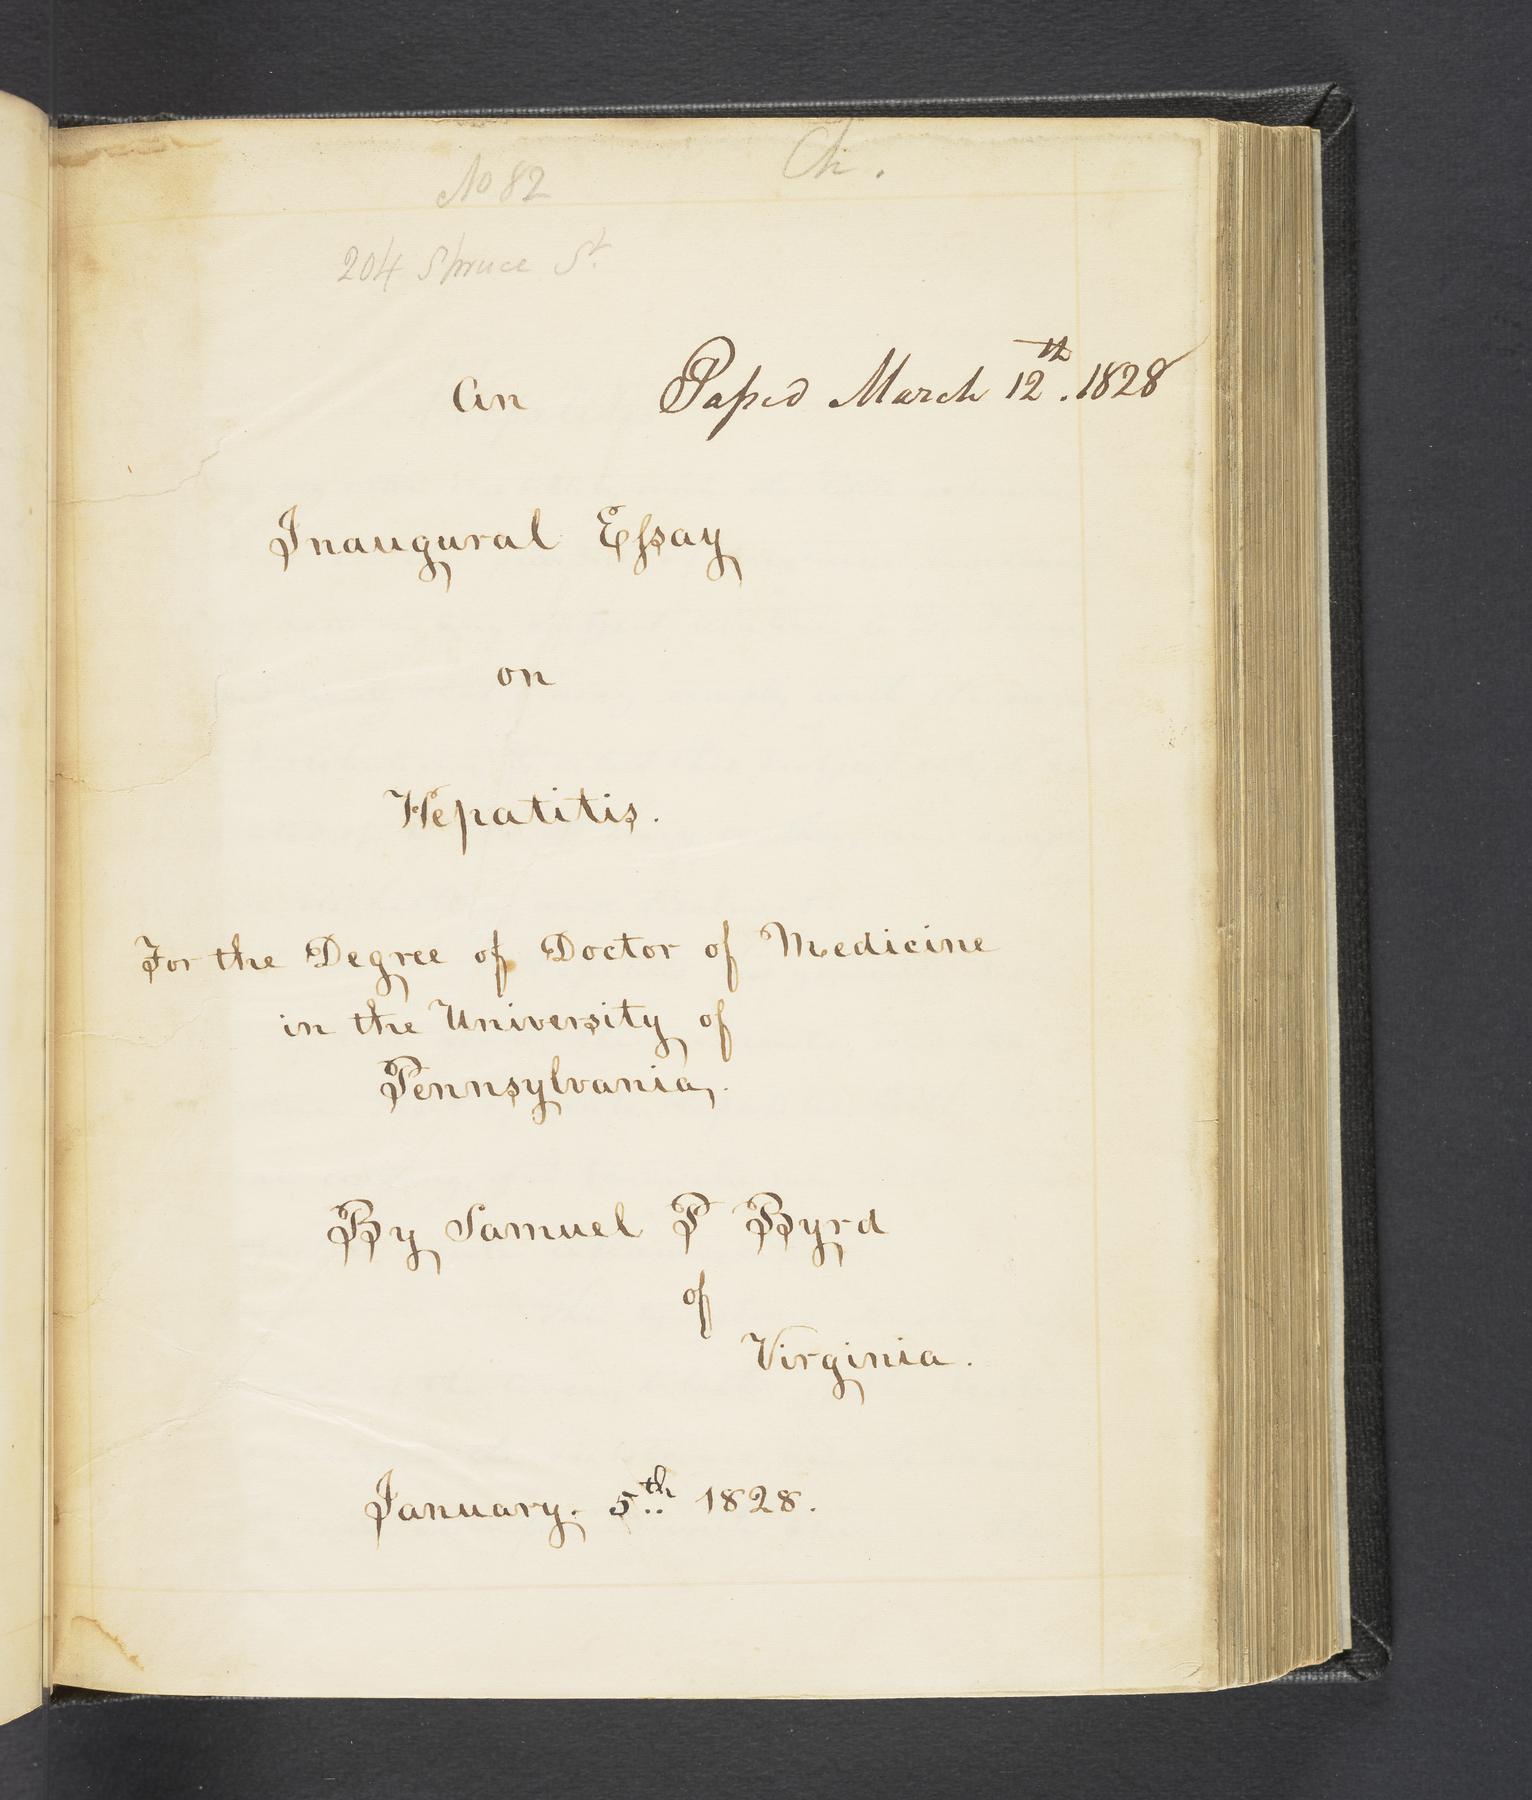 No 82
Ch.
204 Spruce St.
An
Passed March 12th. 1828
Inaugural Essay
on
Hepatitis.
For the Degree of Doctor of Medicine
in the University of
Pennsylvania,.
By Samuel P Byrd
of
Virginia.
January. 5th 1828.